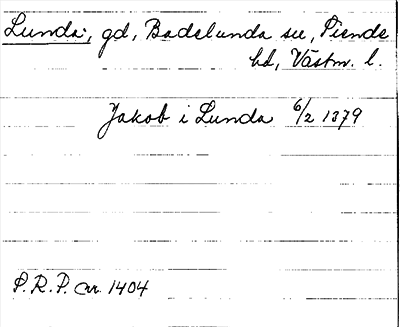 Lunda, gd, Badelunda sn, Siende
hd, Västm. l.
Jakob i Lunda 6/2 1379
P.R.P. nr 1404